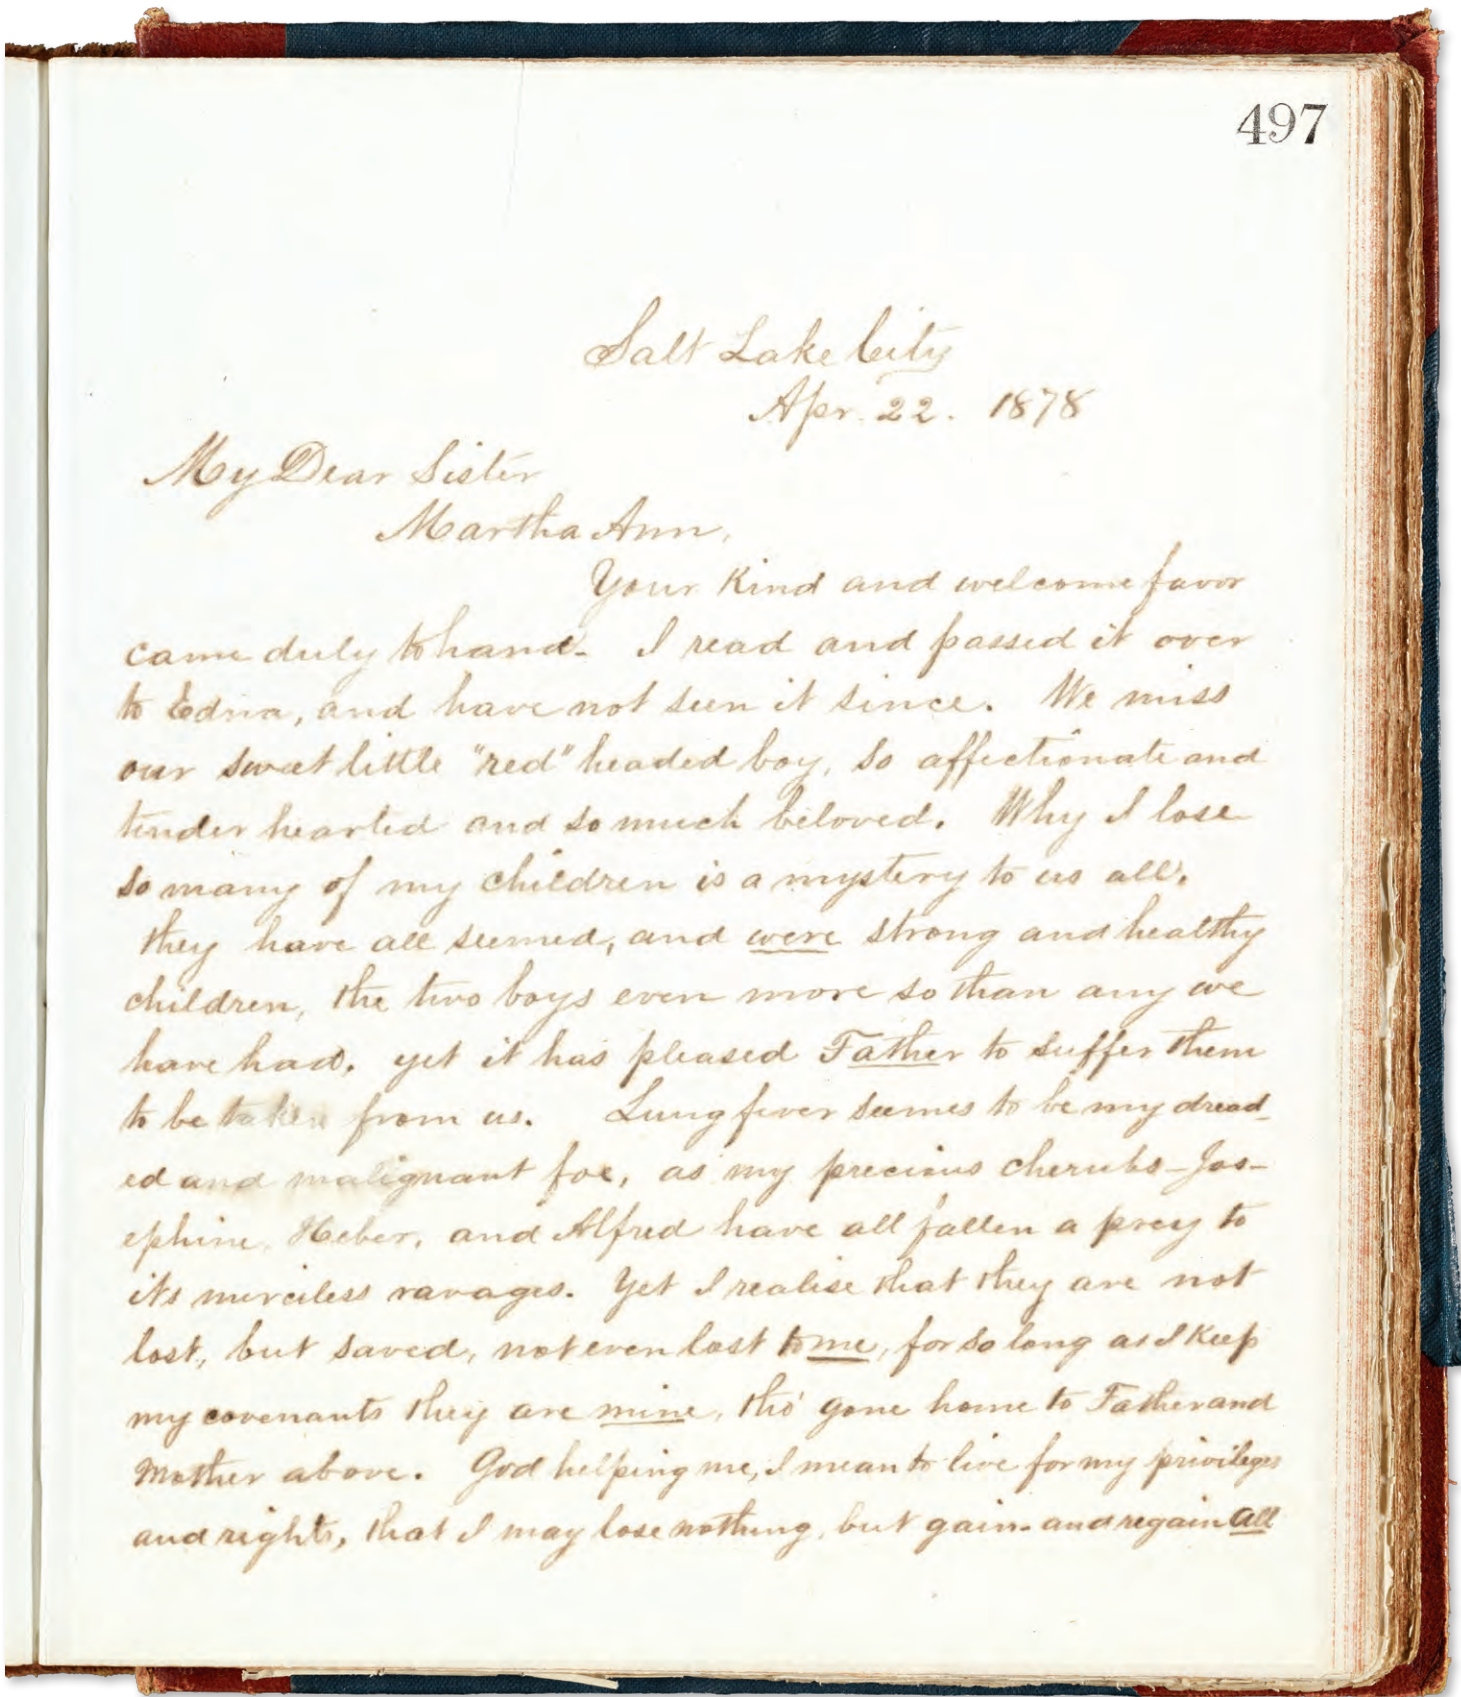 497
Salt Lake City
Apr. 22. 1878
My Dear Sister
Martha Ann,
Your Kind and welcome favor
came duly to hand- I read and passed it over
to Edna, and have not seen it since. We miss
our sweet little "red" headed boy, so affectionate and
tender hearted and so much beloved. Why I lose
so many of my children is a mystery to us all.
they have all seemed, and were strong and healthy
children, the two boys even more so than any we
have had. yet it has pleased Father to suffer them
to be taken from us. Lung fever seemes to be my dread-
ed and malignant foe, as my precious cherubs-Jos-
ephine, Heber, and Alfred have all fallen a prey to
its merciless ravages. Yet I realise that they are not
lost, but saved, not even lost to me, for so long as I Keep
my covenants they are mine, tho' gone home to Father and
Mother above. God helping me, I mean to live for my privileges
and rights, that I may lose nothing, but gain-and regain all